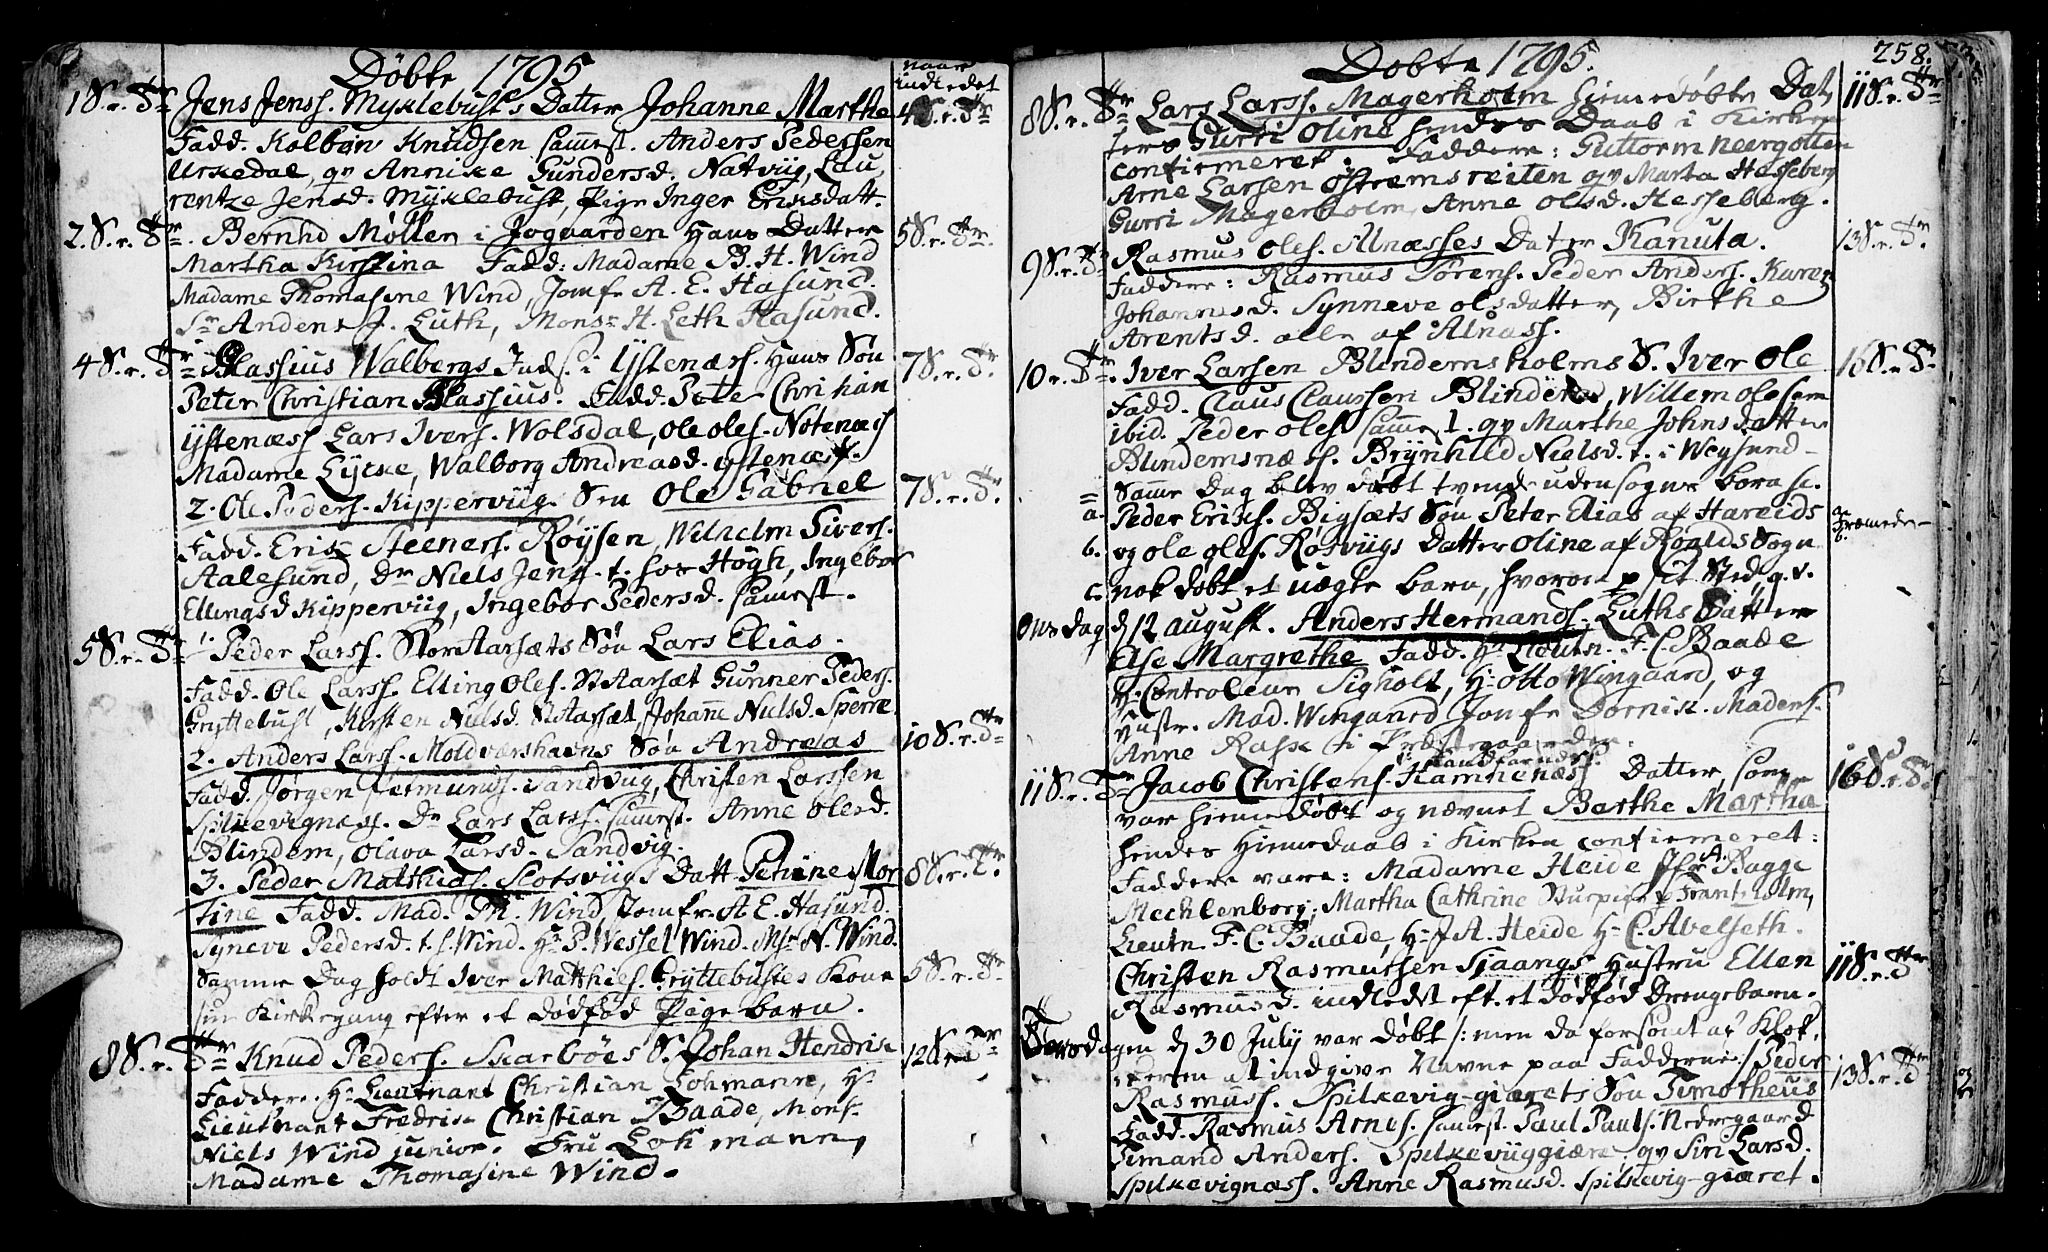 Döbte 1795
naar
indledet
1 S. r. Tr. Jens Jenss. Myklebust's Datter Johanne Marthe 4 S. r. Tr
Fadd. Kolbøn Knudsen samest. Anders Pedersen
Urkedal, qv Annike Gundersd. Natviig, Lau,
rentze Jensd. Myklebust, Pige Inger Eriksdatt.
2. S. r. Tr. Bernhd Møller i Jogaarden Hans Datter 5 S. r. Tr.
Martha Kirstina Fadd: Madame B. H. Wind
Madame Thomasine Wind, Jomfr A. E. Hasund.
Sr Anders J. Luth, Monsr H. Leth Hasund.
4 S. r. Tr Blassius Walbergs i Ystenæss. Hans Søn 7 S. r. Tr.
Peter Christian Blassius. Fadd. Peter Christian
Ystenæss Lars Ivers. Wolsdal, Ole Oles. Notenæss
Madame Lycke, Walborg Andreasd. Ystenæss.
2. Ole Peders. Kipperviig Søn Ole Gabriel 7 S. r. Tr.
Fadd. Erik Steeners. Røysen, Wilhelm Sivers.
Aalesund, Dr Niels Jens t. hos Høgh, Ingebor
Ellingsd Kipperviig, Ingebor Pedersd. samest.
5 S. r. Tr 1. Peder Larss. Stor Aarsæts Søn Lars Elias.
Fadd. Ole Larss. Elling Oles. St Aarsæt Gunner Peders.
Gryttebust, Kirsten Nielsd. St Aarsæt, Johane Nielsd. Sperre
2. Anders Larss. Moldværshavns Søn Andreas 10 S. r. Tr
Fadd. Jørgen Jetmunds. Sandviig, Christen Larssen
Spilkevignæss. Dr Lars Larss. samest. Anne Olesd.
Blindem, Olava Larsd. Sandvig.
3. Peder Matthias. Slotsviigs Datt Petrine Mor 8 S. r. Tr.
tine Fadd. Mad. Th. Wind, Jomfr. A. E. Hasund.
Syneve Pedersd. t. s. Wind. Hr P. Wessel Wind. Msr N. Wind.
Samme Dag holdt Iver Matthies. Gryttebustes Kone 5 S. r. Tr.
sin Kirkegang efter et dødfød Pigebarn.
8 S. r. Tr Knud Peders. Skarbøes S. Johan Hendrik 12 S. r. Tr
Faddere. Hr Lieutnant Christian Lohmann, Hr
Lieutnant Fredrik Christian Baade, Mons.
Niels Wind junior. Fru Lohmann,
Madame Thomasine Wind.
Döbte 1795.
258.
8 S. r. Tr Lars Larss. Magerholm Hiemedøbte Dat, 11 S. r. Tr
ters Gurri Oline hendes Daab i Kirken
confirmeret. Faddere: Guttorm Neergotten
Arne Larsen Østremsreiten qv Marta Hesseberg
Gurri Magerholm, Anne Olsd. Hesseberg.
9 S. r. Tr Rasmus Oles. Alnæsses Datter Kanuta. 13 S. r. Tr.
Faddere: Rasmus Sørens. Peder Anders. Karen
Johannesd. Synneve Olsdatter, Birthe
Arentsd. alle af Alnæss.
10. r. Tr. Iver Larsen Blindemsholms S. Iver Ole 16 S. r. Tr
Fadd. Claus Claussen Blindem, Willem Olesem
ibid. Peder Oles samest. qv Marthe Johnsdatter
Blindemsnæss. Brynhild Nielsd. t. i Weysund
= Samme Dag blev døbt tvende udensogns børn sc.
a. Peder Eriks. Bigsæts Søn Peter Elias af Hareids a. fræmede
b. og Ole Oles. Røsviigs Datter Oline af Roalds Sogn b.
c. nok døbt et uægte barn, hvorom p sit Sted q. v.
Onsdag d 12 August. Anders Hermands. Luths Datter
Else Margrethe Fadd. Hr Lieutn. F. C. Baade
Hr Controleur Sigholt, Hr Otto Wingaard, og
Hustr. Mad. Wingaard Jomfr Dornik. Maders.
Anne Rask i Præstegaarden.
11 S. r. Tr Jacob Christens. Hamnenæss Datter, som 16 S. r. Tr.
var hiemedøbt og nævnet Berthe Martha
hendes Hiemedaab i Kirken confirmeret:
Faddere vare: Madame Heide Jfr A. Bagge
Mechlenborg; Martha Cathrine Stuepige Frantz Holm,
Lieutn. F. C. Baade, Hr J A. Heide Hr C. Abelseth.
Christen Rasmussen Sjaangs Hustru Ellen 11 S. r. Tr
Rasmusd. indledet eft. et dødfød Drengebarn.
Torsdagen d 30 July var døbt /: men da forsømt af Klok,
keren at indgive Navne paa Fadderne :/ Peder 13 S. r. Tr
Rasmuss. Spilkevig-giærets Søn Timotheus
Fadd. Rasmus Arnes. samest. Paul Pauls. Nedregaard
Simand Anders. Spilkeviiggiære, qv Siri Larsd.
Spilkevignæss. Anne Rasmusd. Spilkevig-giæret.